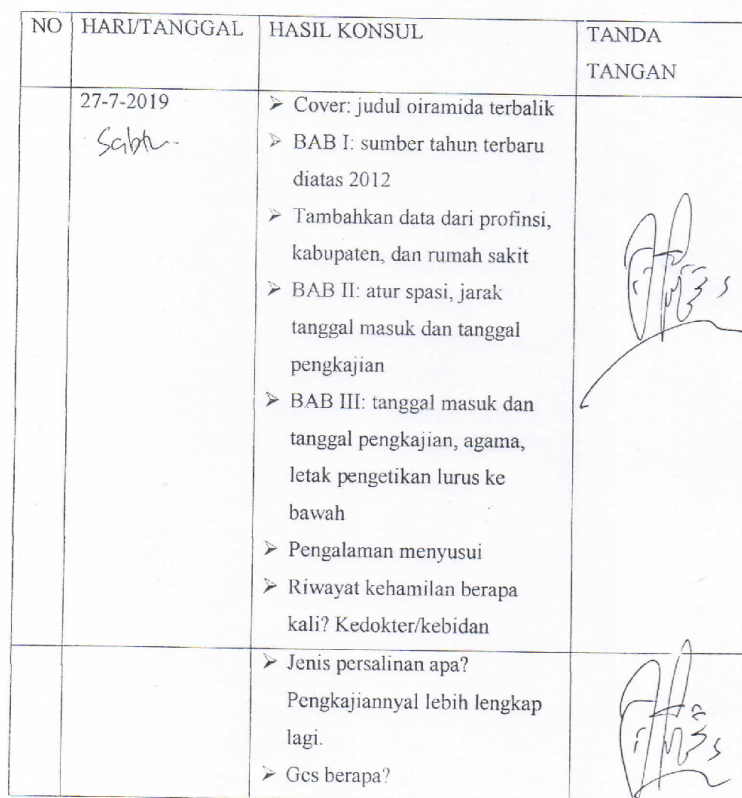 NO HARI/TANGGAL HASIL KONSUL TANDA
TANGAN
27-7-2019
Sabtu
➢ Cover: judul oiramida terbalik
➢ BAB I: sumber tahun terbaru
diatas 2012
➢ Tambahkan data dari profinsi,
kabupaten, dan rumah sakit
➢ BAB II: atur spasi, jarak
tanggal masuk dan tanggal
pengkajian
➢ BAB III: tanggal masuk dan
tanggal pengkajian, agama,
letak pengetikan lurus ke
bawah
➢ Pengalaman menyusui
➢ Riwayat kehamilan berapa
kali? Kedokter/kebidan
➢ Jenis persalinan apa?
Pengkajiannyal lebih lengkap
lagi.
➢ Gcs berapa?